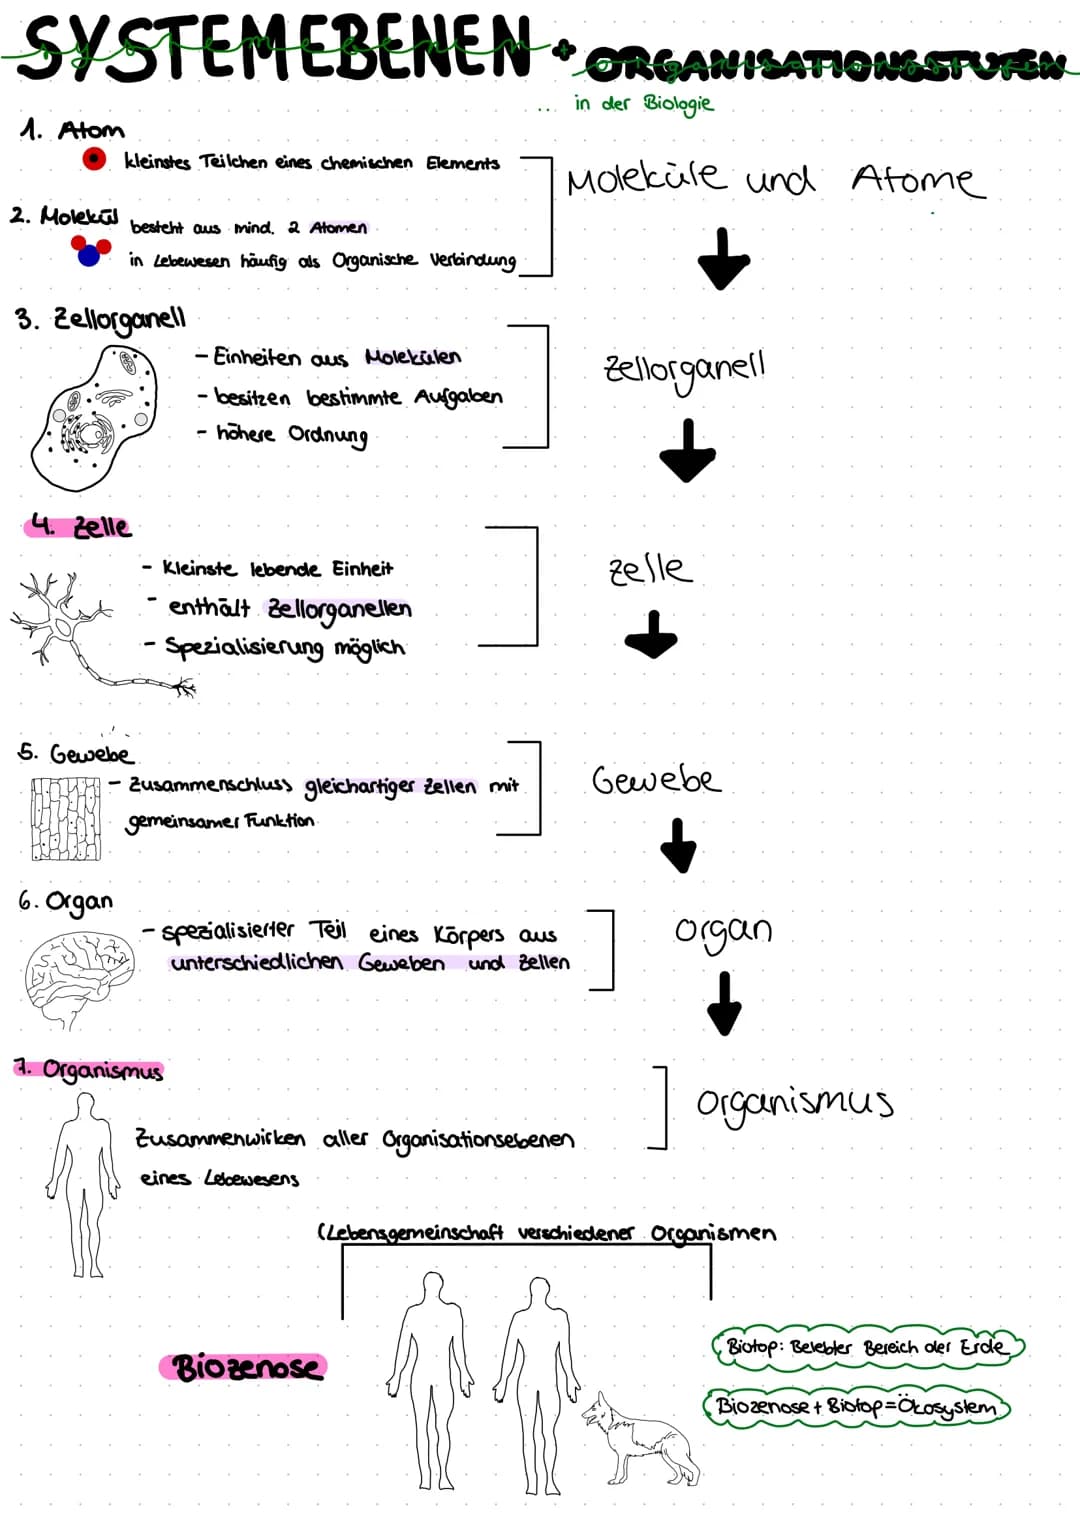 SYSTEMEBENEN + ORGANISATIONSSTUFEN
systemebenen + organisationsstufen
... in der Biologie
1. Atom
kleinstes Teilchen eines chemischen Elements
Moleküle und Atome
2. Molekül
besteht aus mind. 2 Atomen
in Lebewesen häufig als Organische Verbindung
3. Zellorganell
- Einheiten aus Molekülen
- besitzen bestimmte Aufgaben
- höhere Ordnung
Zellorganell
4. Zelle
- Kleinste lebende Einheit
- enthält Zellorganellen
- Spezialisierung möglich
Zelle
5. Gewebe
- Zusammenschluss gleichartiger Zellen mit
gemeinsamer Funktion
Gewebe
6. Organ
- spezialisierter Teil eines Körpers aus
unterschiedlichen Geweben und Zellen
Organ
7. Organismus
Zusammenwirken aller Organisationsebenen
eines Lebewesens
Organismus
(Lebensgemeinschaft verschiedener Organismen
Biozenose
Biotop: Belebter Bereich der Erde
Biozenose + Biotop = Ökosystem